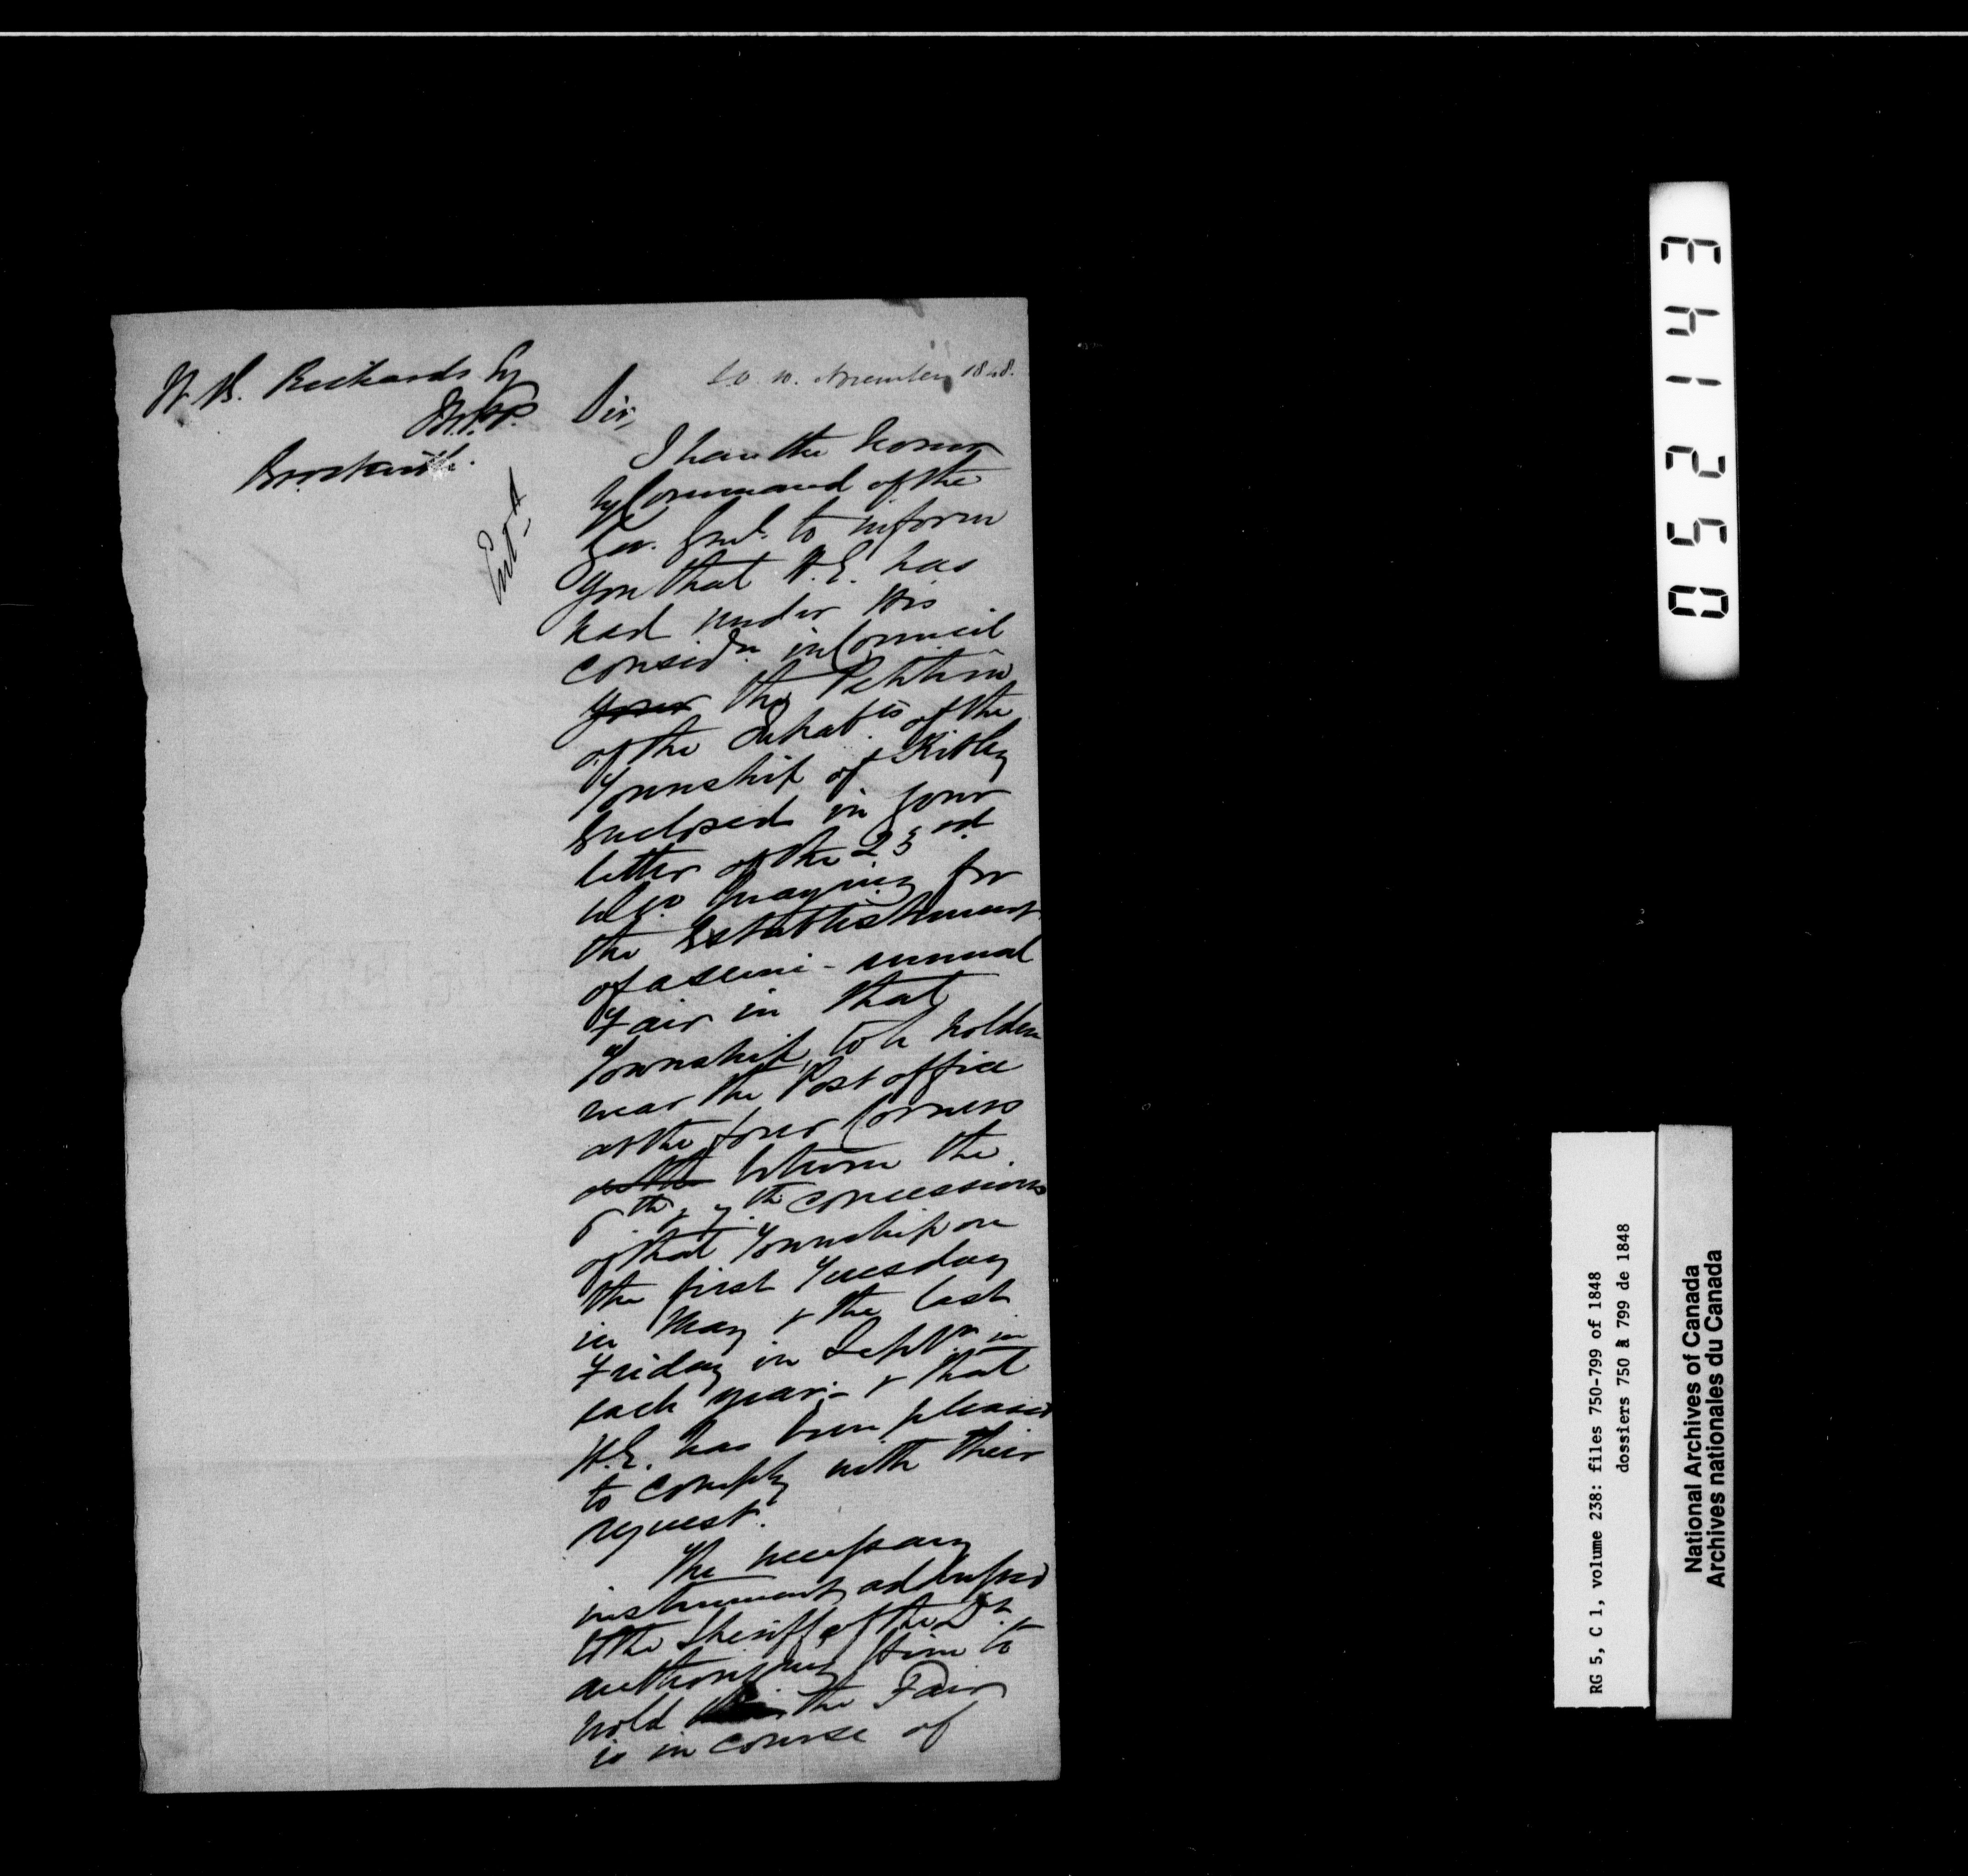 W. B. Richards Esq
M.P.P.
Brockville.
Entd
10. November 1848.
Sir,
I have the honor
by Command of the
Gov. Genl. to inform
you that H.E. has
had under His
considn in Council
your the Petition
of the Inhabts of the
Township of Kitley
Enclosed in your
letter of the 23rd
ulto praying for
the Establishment
of a semi-annual
Fair in that
Township, to be holden
near the Post office
at the four Corners
on the between the
6th & 7th concessions
of that Township on
the first Tuesday
in May & the last
Friday in Septr in
each year:- & that
H.E. has been pleased
to comply with their
request.
The necessary
instrument, addressed
to the Sheriff of the Dt.
authorizing Him to
hold the Fair
is in course of
052143
RG 5, C 1, volume 238: files 750-799 of 1848
dossiers 750 à 799 de 1848
National Archives of Canada
Archives nationales du Canada